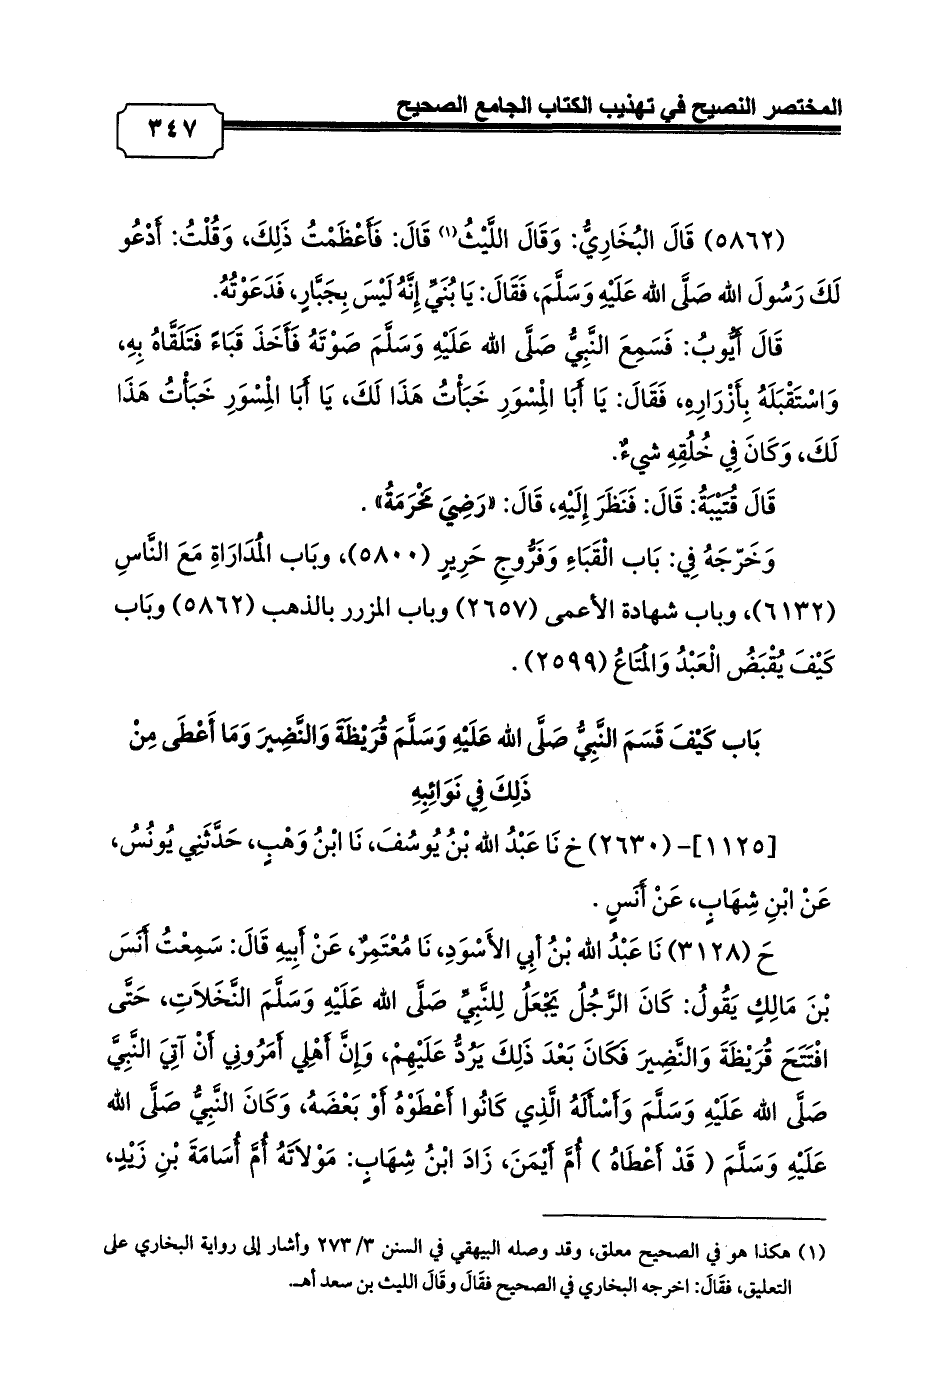 المختصر النصيح في تهذيب الكتاب الجامع الصحيح
٣٤٧
(٥٨٦٢) قَالَ البُخَارِيُّ: وَقَالَ اللَّيْثُ(١) قَالَ: فَأَعْظَمْتُ ذَلِكَ، وَقُلْتُ: أَدْعُو
لَكَ رَسُولَ الله صَلَّى الله عَلَيْهِ وَسَلَّمَ، فَقَالَ: يَا بُنَيِّ إِنَّهُ لَيْسَ بِجَبَّارٍ، فَدَعَوْتُهُ.
قَالَ أَيُّوبُ: فَسَمِعَ النَّبِيُّ صَلَّى الله عَلَيْهِ وَسَلَّمَ صَوْتَهُ فَأَخَذَ قَبَاءً فَتَلَقَّاهُ بِهِ،
وَاسْتَقْبَلَهُ بِأَزْرَارِهِ، فَقَالَ: يَا أَبَا المِسْوَرِ خَبَأْتُ هَذَا لَكَ، يَا أَبَا المِسْوَرِ خَبَأْتُ هَذَا
لَكَ، وَكَانَ فِي خُلُقِهِ شيءٌ.
قَالَ قُتَيْبَةُ: قَالَ: فَنَظَرَ إِلَيْهِ، قَالَ: «رَضِيَ مَخْرَمَةُ» .
وَخَرّجَهُ فِي: بَاب الْقَبَاءِ وَفَرُّوجِ حَرِيرٍ (٥٨٠٠)، وبَاب الْمُدَارَاةِ مَعَ النَّاسِ
(٦١٣٢)، وباب شهادة الأعمى (٢٦٥٧) وباب المزرر بالذهب (٥٨٦٢) وبَاب
كَيْفَ يُقْبَضُ الْعَبْدُ وَالْمَتَاعُ (٢٥٩٩) .
بَاب كَيْفَ قَسَمَ النَّبِيُّ صَلَّى الله عَلَيْهِ وَسَلَّمَ قُرَيْظَةَ وَالنَّضِيرَ وَمَا أَعْطَى مِنْ
ذَلِكَ فِي نَوَائِبِهِ
[١١٢٥]- (٢٦٣٠) خ نَا عَبْدُ الله بْنُ يُوسُفَ، نَا ابْنُ وَهْبٍ، حَدَّثَنِي يُونُسُ،
عَنْ ابْنِ شِهَابٍ، عَنْ أَنَسٍ .
حَ (٣١٢٨) نَا عَبْدُ الله بْنُ أبي الأَسْوَدِ، نَا مُعْتَمِرٌ، عَنْ أَبِيهِ قَالَ: سَمِعْتُ أَنَسَ
بْنَ مَالِكٍ يَقُولُ: كَانَ الرَّجُلُ يَجْعَلُ لِلنَّبِيِّ صَلَّى الله عَلَيْهِ وَسَلَّمَ النَّخَلاَتِ، حَتَّى
افْتَتَحَ قُرَيْظَةَ وَالنَّضِيرَ فَكَانَ بَعْدَ ذَلِكَ يَرُدُّ عَلَيْهِمْ، وَإِنَّ أَهْلِي أَمَرُونِي أَنْ آتِيَ النَّبِيَّ
صَلَّى الله عَلَيْهِ وَسَلَّمَ وَأَسْأَلَهُ الَّذِي كَانُوا أَعْطَوْهُ أَوْ بَعْضَهُ، وَكَانَ النَّبِيُّ صَلَّى الله
عَلَيْهِ وَسَلَّمَ ( قَدْ أَعْطَاهُ ) أُمَّ أَيْمَنَ، زَادَ ابْنُ شِهَابٍ: مَوْلاَتَهُ أُمَّ أُسَامَةَ بْنِ زَيْدٍ،
(١) هكذا هو في الصحيح معلق، وقد وصله البيهقي في السنن ٣/ ٢٧٣ وأشار إلى رواية البخاري على
التعليق، فقَالَ: اخرجه البخاري في الصحيح فقَالَ وقَالَ الليث بن سعد أهـ.